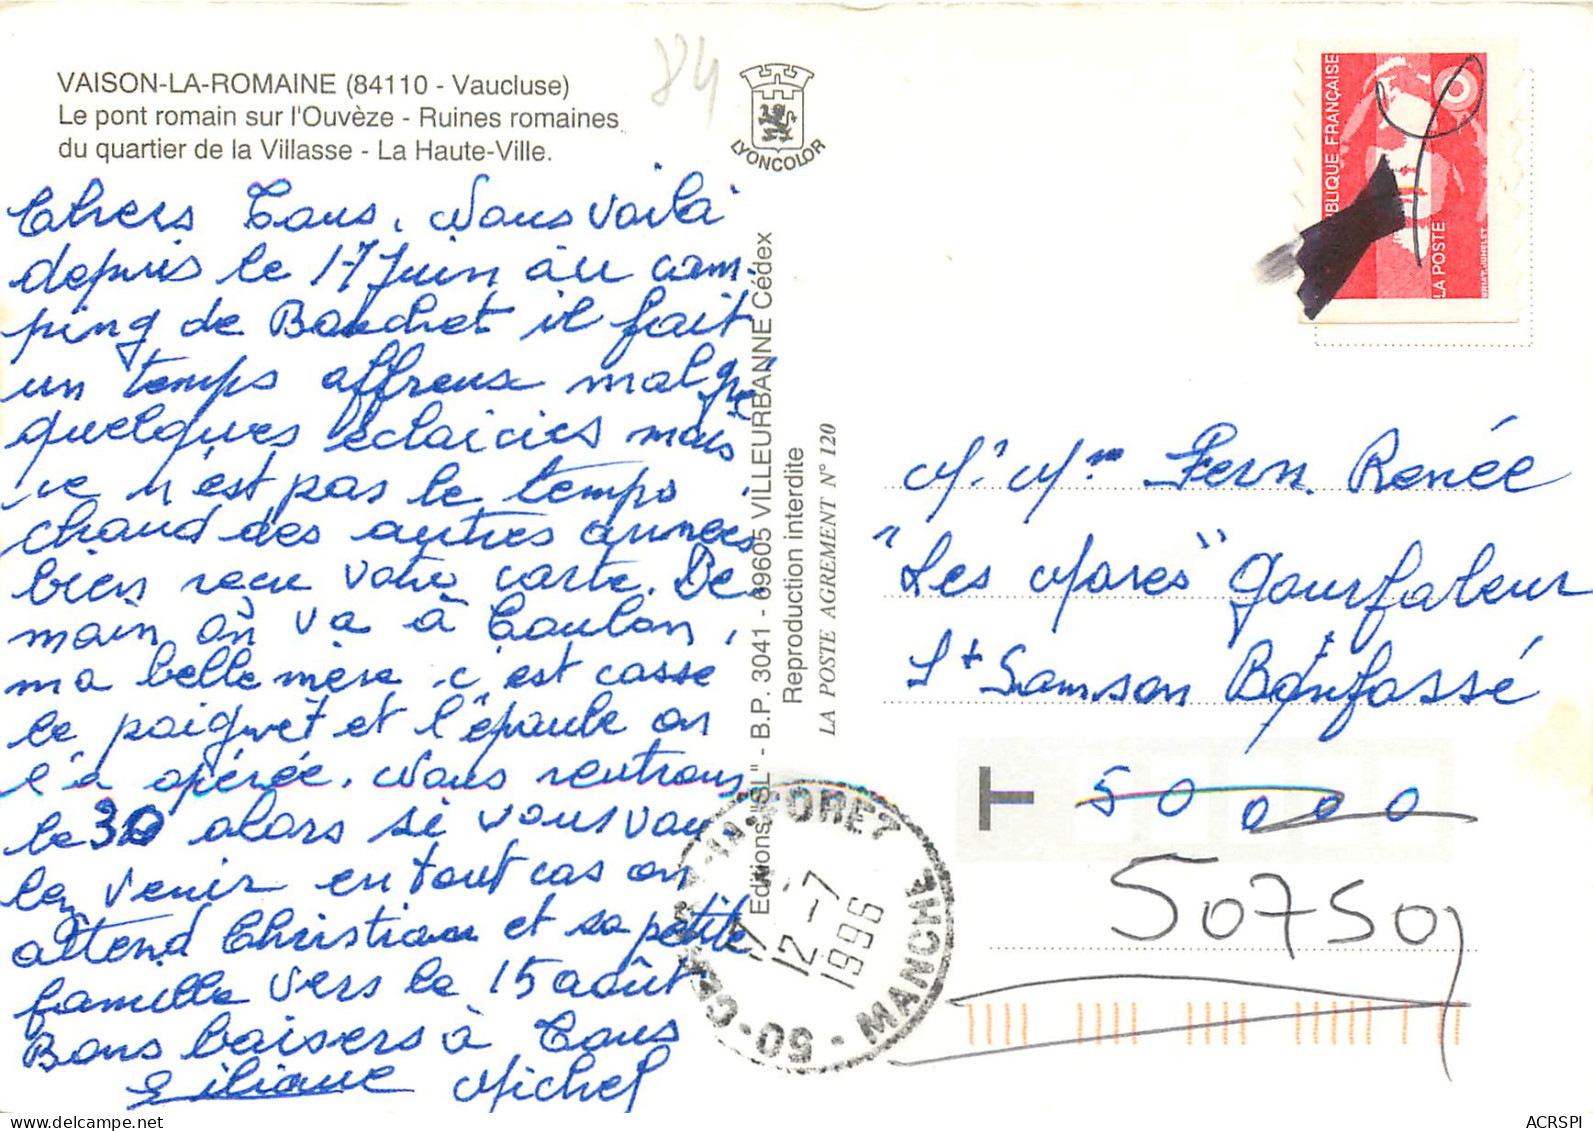 VAISON-LA-ROMAINE (84110 - Vaucluse)
Le pont romain sur l'Ouvèze - Ruines romaines
du quartier de la Villasse - La Haute-Ville.
84
LYONCOLOR
Chers Tous, Nous voilà
depuis le 17 Juin au cam-
ping de Bouchet il fait
un temps affreux malgré
quelques éclaicies mais
ce n'est pas le temps
chaud des autres années
bien reçu votre carte. De
main on va à Toulon,
ma belle mère c'est cassé
le poignet et l'épaule on
l'a opérée. Nous rentrons
le 30 alors si vous vou
lez venir en tout cas on
attend Christian et sa petite
famille vers le 15 août
Bons baisers à Tous
Liliane Michel
Editions "SL" - B.P. 3041 - 69605 VILLEURBANNE Cédex
Reproduction interdite
LA POSTE AGREMENT N° 120
RÉPUBLIQUE FRANÇAISE
LA POSTE
BRIAT-JUMELET
M. Mme Fern. Renée
"Les Mares" Gourfaleur
St Samson Bonfossé
T
50 000
50750
17
12-7
1996
50 - MANCHE
ACRSPI
delcampe.net